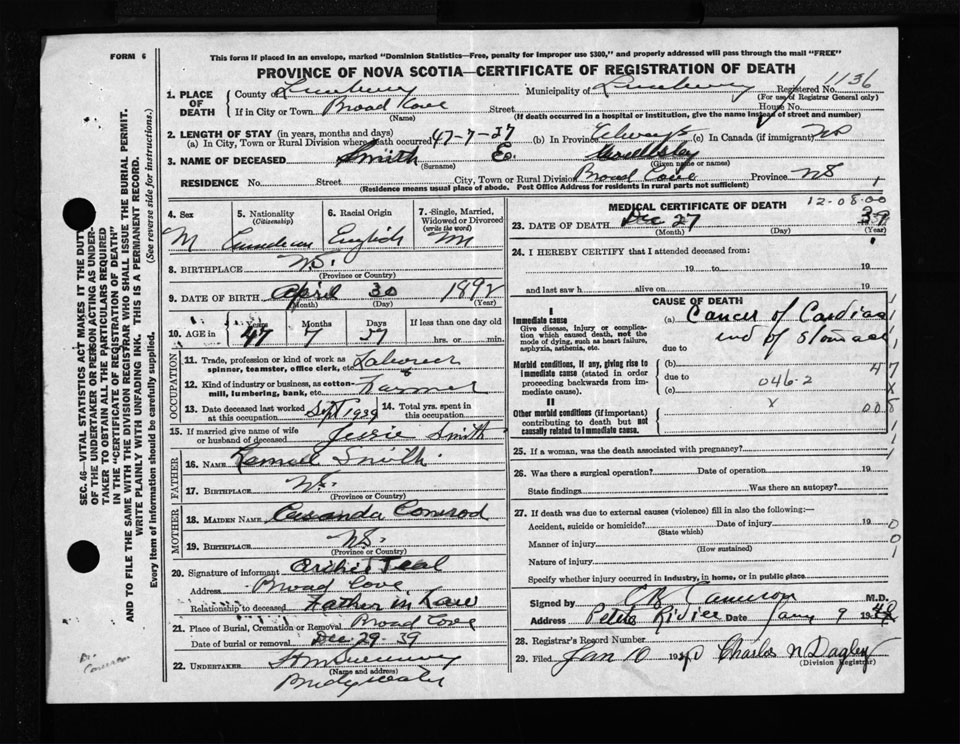 FORM 6
This form if placed in an envelope, marked "Dominion Statistics—Free, penalty for improper use $300," and properly addressed will pass through the mail "FREE"
PROVINCE OF NOVA SCOTIA—CERTIFICATE OF REGISTRATION OF DEATH
1. PLACE OF DEATH
County of Lunenburg Municipality of Lunenburg Registered No. 1136
(For use of Registrar General only)
If in City or Town Broad Cove Street House No.
(Name) (If death occurred in a hospital or institution, give the name instead of street and number)
2. LENGTH OF STAY (in years, months and days)
(a) In City, Town or Rural Division where death occurred 47-7-27 (b) In Province Always (c) In Canada (if immigrant)
3. NAME OF DECEASED Smith E.
(Surname) (Given name or names)
RESIDENCE No. Street City, Town or Rural Division Broad Cove Province NS
(Residence means usual place of abode. Post Office Address for residents in rural parts not sufficient)
4. Sex
M
5. Nationality
(Citizenship)
Canadian
6. Racial Origin
English
7. Single, Married, Widowed or Divorced
(write the word)
M
8. BIRTHPLACE N.S.
(Province or Country)
9. DATE OF BIRTH April 30 1892
(Month) (Day) (Year)
10. AGE in
Years Months Days If less than one day old
47 7 27 hrs. or min.
OCCUPATION
11. Trade, profession or kind of work as spinner, teamster, office clerk, etc. Laborer
12. Kind of industry or business, as cotton-mill, lumbering, bank, etc. Farmer
13. Date deceased last worked at this occupation Sept 1939 14. Total yrs. spent in this occupation
15. If married give name of wife or husband of deceased Smith
FATHER
16. NAME Smith
17. BIRTHPLACE N.S.
(Province or Country)
MOTHER
18. MAIDEN NAME
19. BIRTHPLACE N.S.
(Province or Country)
20. Signature of informant Archie Teal
Address Broad Cove
Relationship to deceased Father in Law
21. Place of Burial, Cremation or Removal Broad Cove
Date of burial or removal Dec-29-39
22. UNDERTAKER
(Name and address)
Bridgewater
MEDICAL CERTIFICATE OF DEATH 12-08-00
23. DATE OF DEATH Dec 27 39
(Month) (Day) (Year)
24. I HEREBY CERTIFY that I attended deceased from:
19 to 19
and last saw h alive on 19
CAUSE OF DEATH
I
Immediate cause (a) Cancer of Cardiac
Give disease, injury or complication which caused death, not the mode of dying, such as heart failure, asphyxia, asthenia, etc.
end of stomach
due to
Morbid conditions, if any, giving rise to immediate cause (stated in order proceeding backwards from immediate cause).
(b)
due to 046-2
(c)
47
X
II
Other morbid conditions (important) contributing to death but not causally related to immediate cause.
X
008
25. If a woman, was the death associated with pregnancy?
26. Was there a surgical operation? Date of operation 19
State findings Was there an autopsy?
27. If death was due to external causes (violence) fill in also the following:—
Accident, suicide or homicide? Date of injury 19
(State which)
Manner of injury
(How sustained)
Nature of injury
Specify whether injury occurred in industry, in home, or in public place
Signed by Cameron M.D.
Address Petite Riviere Date Jany 9 1940
28. Registrar's Record Number
29. Filed Jan 10 1940 Charles N Dagley
(Division Registrar)
SEC. 46—VITAL STATISTICS ACT MAKES IT THE DUTY
OF THE UNDERTAKER OR PERSON ACTING AS UNDER-
TAKER TO OBTAIN ALL THE PARTICULARS REQUIRED
IN THE "CERTIFICATE OF REGISTRATION OF DEATH"
AND TO FILE THE SAME WITH THE DIVISION REGISTRAR WHO SHALL ISSUE THE BURIAL PERMIT.
WRITE PLAINLY WITH UNFADING INK. THIS IS A PERMANENT RECORD.
Every item of information should be carefully supplied. (See reverse side for instructions.)